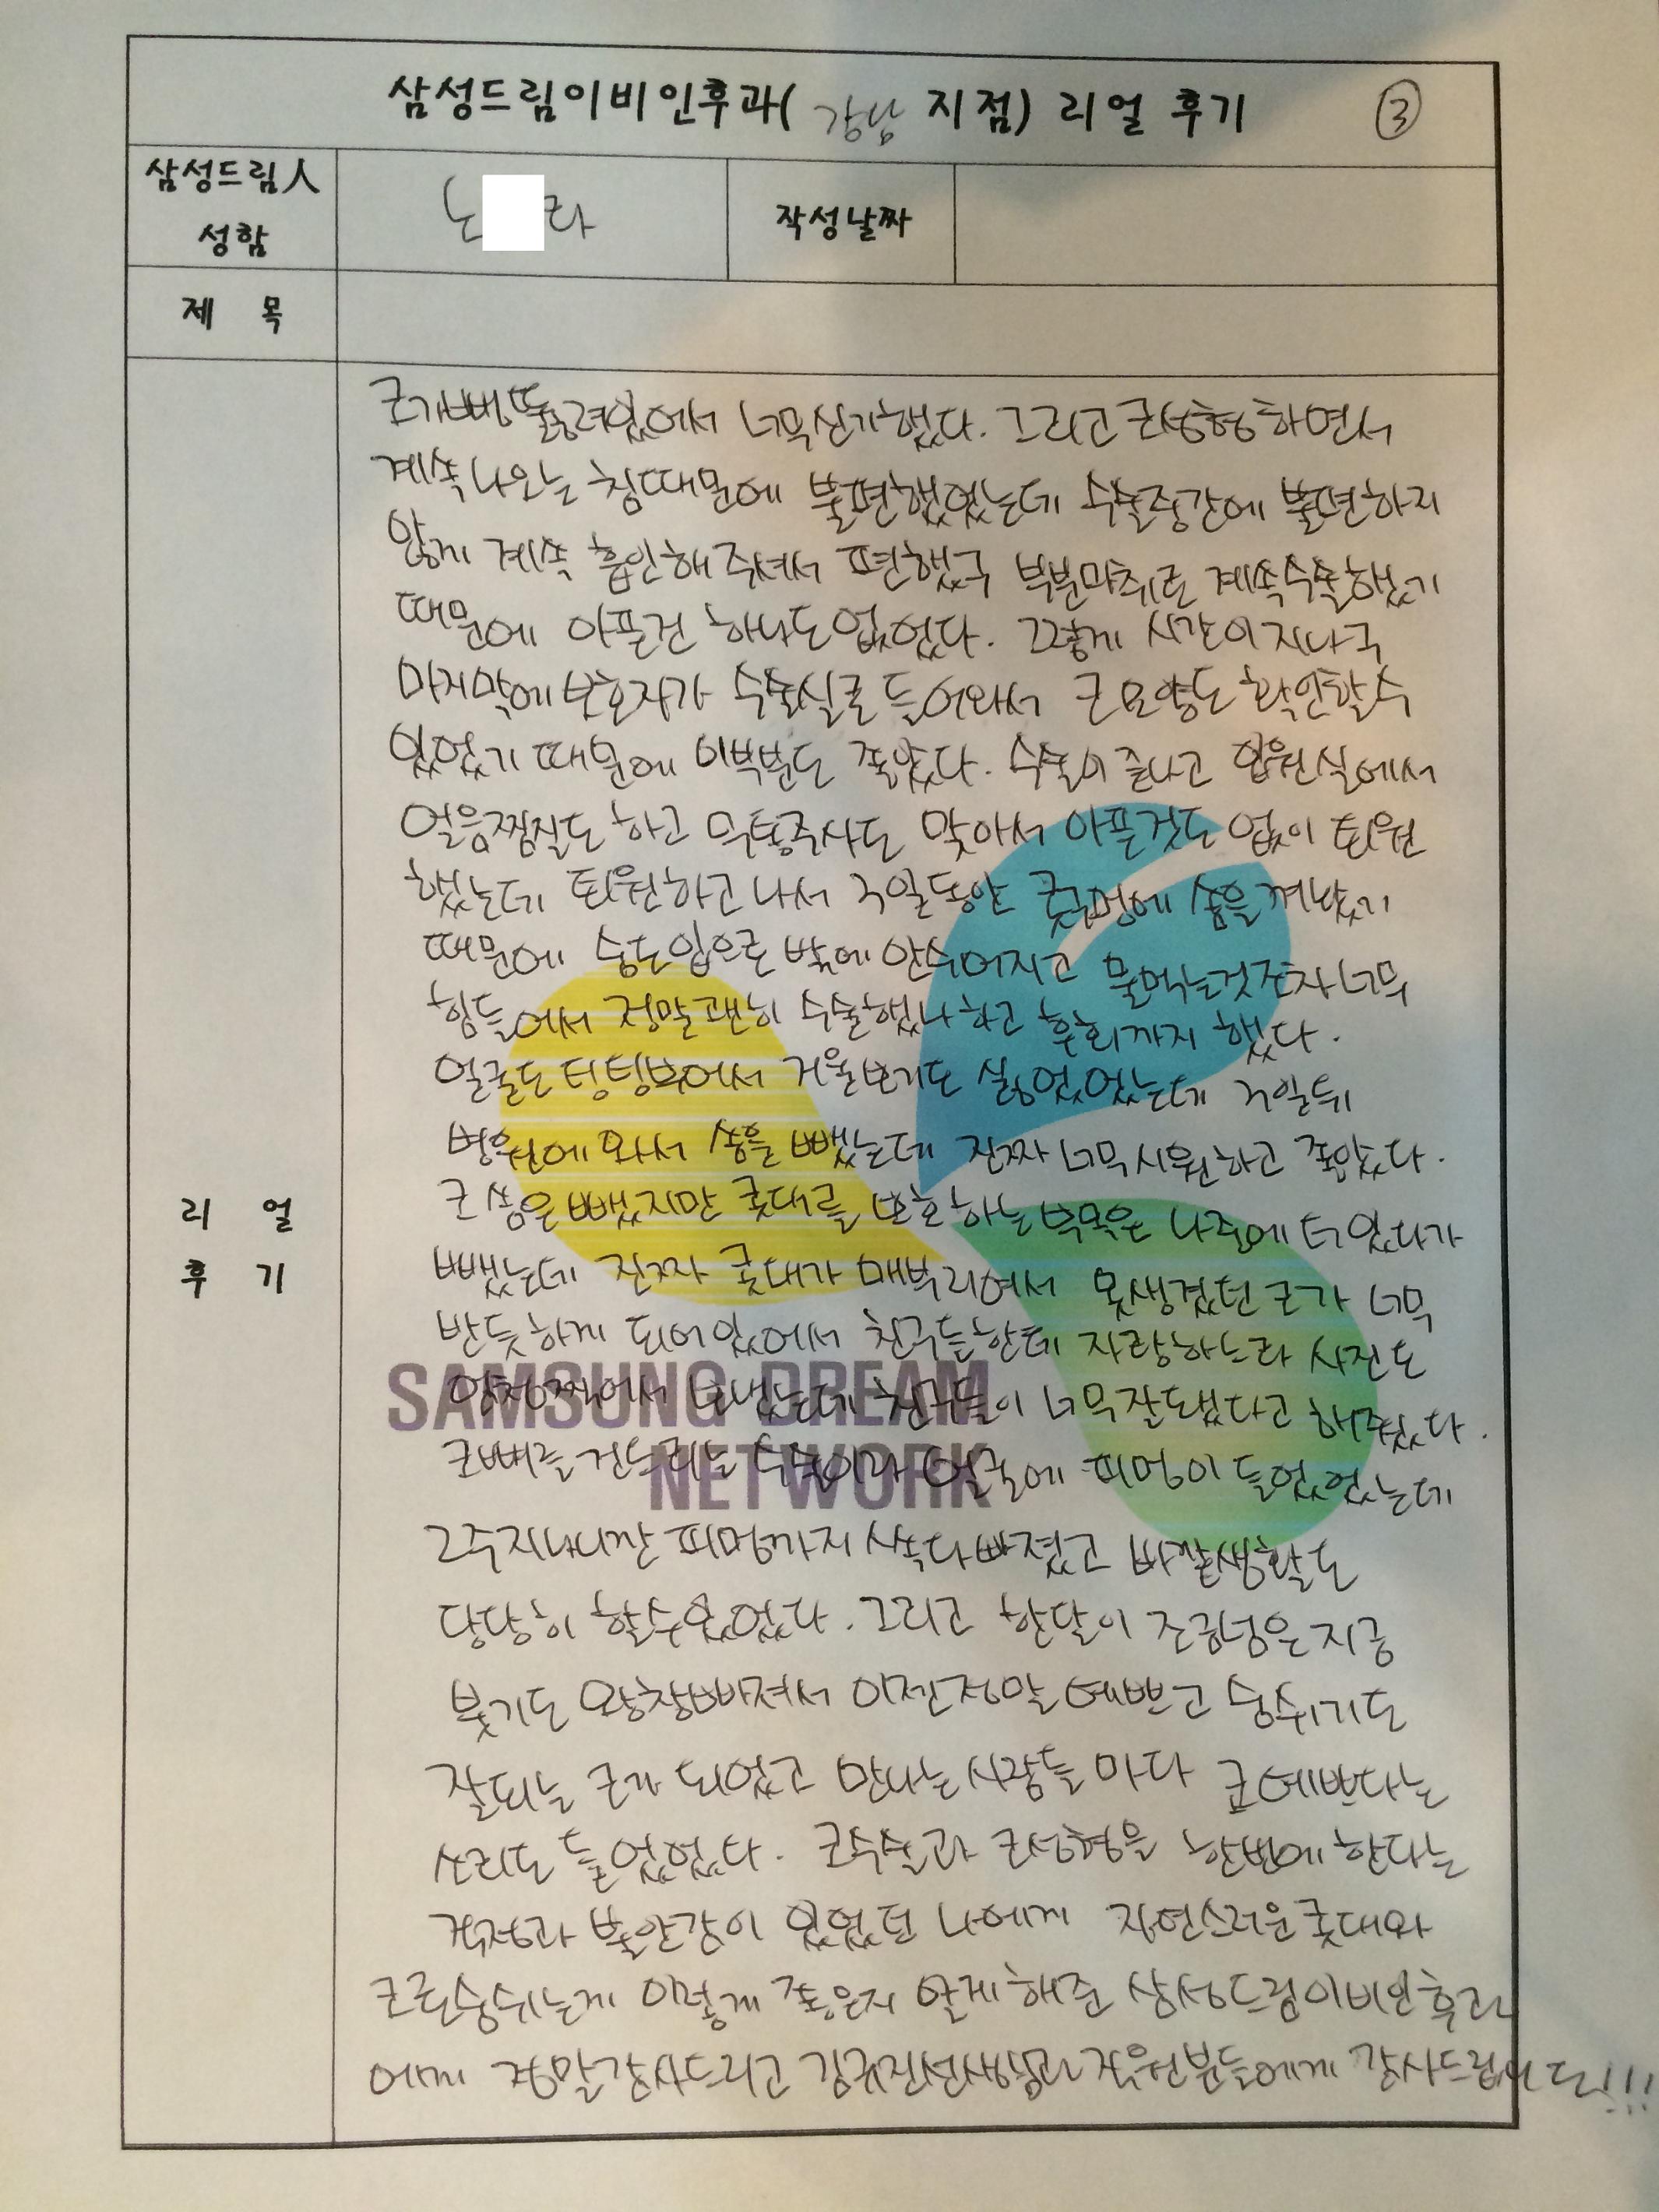 삼성드림이비인후과( 강남 지점) 리얼 후기 ③
삼성드림人 성함
노 라
작성날짜
제 목
리 얼 후 기
코가뻥뚫려있어서 너무신기했다. 그리고 코성형하면서
계속나오는 침때문에 불편했었는데 수술중간에 불편하지
않게 계속 흡인해주셔서 편했구 부분마취로 계속수술했기
때문에 아플건 하나도없었다. 그렇게 시간이지나구
마지막에보호자가 수술실로 들어와서 코모양도 확인할수
있었기 때문에 이부분도 좋았다. 수술이 끝나고 입원실에서
얼음찜질도 하고 무통주사도 맞아서 아픈것도 없이 퇴원
했는데 퇴원하고나서 3일동안 콧구멍에 솜을껴놨기
때문에 숨도입으로 밖에안쉬어지고 물먹는것조차너무
힘들어서 정말괜히 수술했나하고 후회까지 했다.
얼굴도 팅팅부어서 거울보기도 싫었었는데 3일뒤
병원에와서 솜을 뺐는데 진짜너무시원하고 좋았다.
코솜은뺐지만 콧대를 보호하는부목은 나중에더있다가
뺐는데 진짜 콧대가 매부리여서 못생겼던코가 너무
반듯하게 되어있어서 친구들한테 자랑하느라 사진도
엄청찍어서 보냈는데 친구들이 너무잘됐다고 해주었다.
코뼈를 건드리는 수술이라 얼굴에 피멍이 들었었는데
2주지나니깐 피멍까지 싹다빠졌고 바깥생활도
당당히 할수있었다. 그리고 한달이 조금넘은지금
붓기도 왕창빠져서 이젠정말 예쁘고 숨쉬기도
잘되는 코가 되었고 만나는사람들 마다 코예쁘다는
소리도 들었었다. 코수술과 코성형을 한번에한다는
걱정과 불안감이 있었던 나에게 자연스러운콧대와
코로숨쉬는게 이렇게 좋은지 알게해준 삼성드림이비인후과
에게 정말감사드리고 김규진선생님과 직원분들에게 감사드립니다!!!
SAMSUNG DREAM
NETWORK